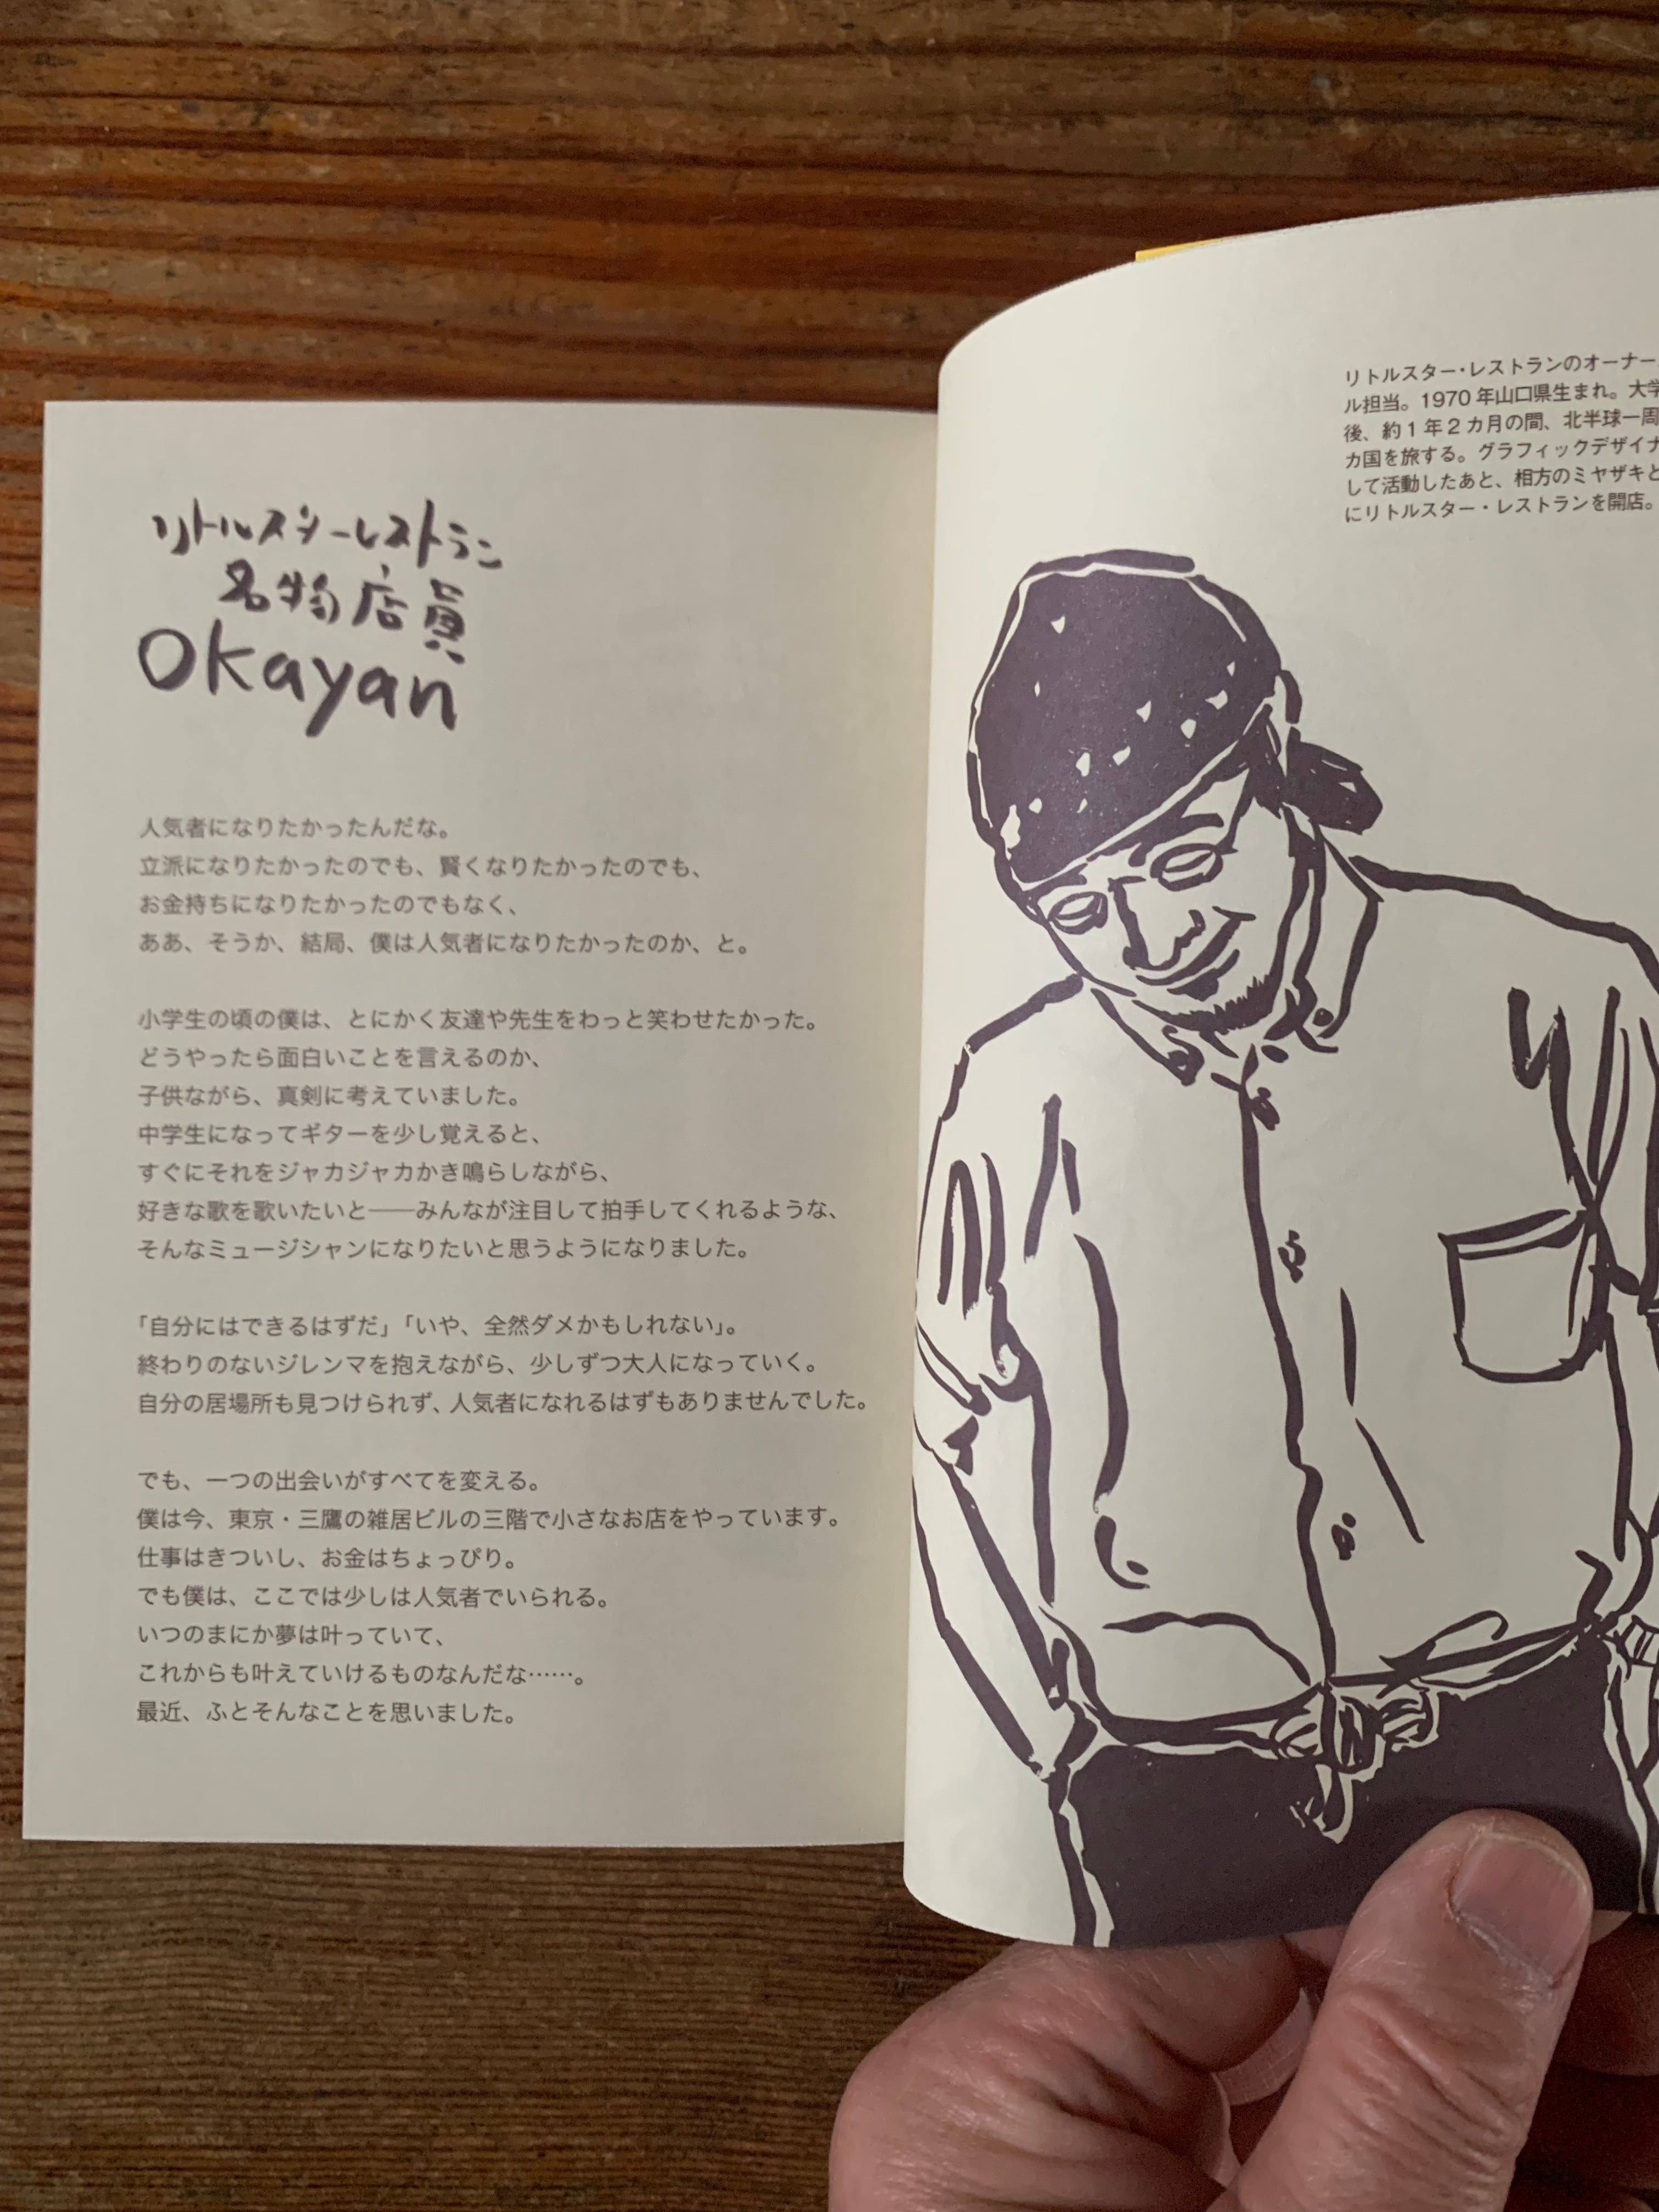 リトルスターレストラン
名物店員
Okayan
人気者になりたかったんだな。
立派になりたかったのでも、賢くなりたかったのでも、
お金持ちになりたかったのでもなく、
ああ、そうか、結局、僕は人気者になりたかったのか、と。
小学生の頃の僕は、とにかく友達や先生をわっと笑わせたかった。
どうやったら面白いことを言えるのか、
子供ながら、真剣に考えていました。
中学生になってギターを少し覚えると、
すぐにそれをジャカジャカかき鳴らしながら、
好きな歌を歌いたいと――みんなが注目して拍手してくれるような、
そんなミュージシャンになりたいと思うようになりました。
「自分にはできるはずだ」「いや、全然ダメかもしれない」。
終わりのないジレンマを抱えながら、少しずつ大人になっていく。
自分の居場所も見つけられず、人気者になれるはずもありませんでした。
でも、一つの出会いがすべてを変える。
僕は今、東京・三鷹の雑居ビルの三階で小さなお店をやっています。
仕事はきついし、お金はちょっぴり。
でも僕は、ここでは少しは人気者でいられる。
いつのまにか夢は叶っていて、
これからも叶えていけるものなんだな……。
最近、ふとそんなことを思いました。
リトルスター・レストランのオーナー
ル担当。1970年山口県生まれ。大学
後、約1年2カ月の間、北半球一周
カ国を旅する。グラフィックデザイナ
して活動したあと、相方のミヤザキと
にリトルスター・レストランを開店。